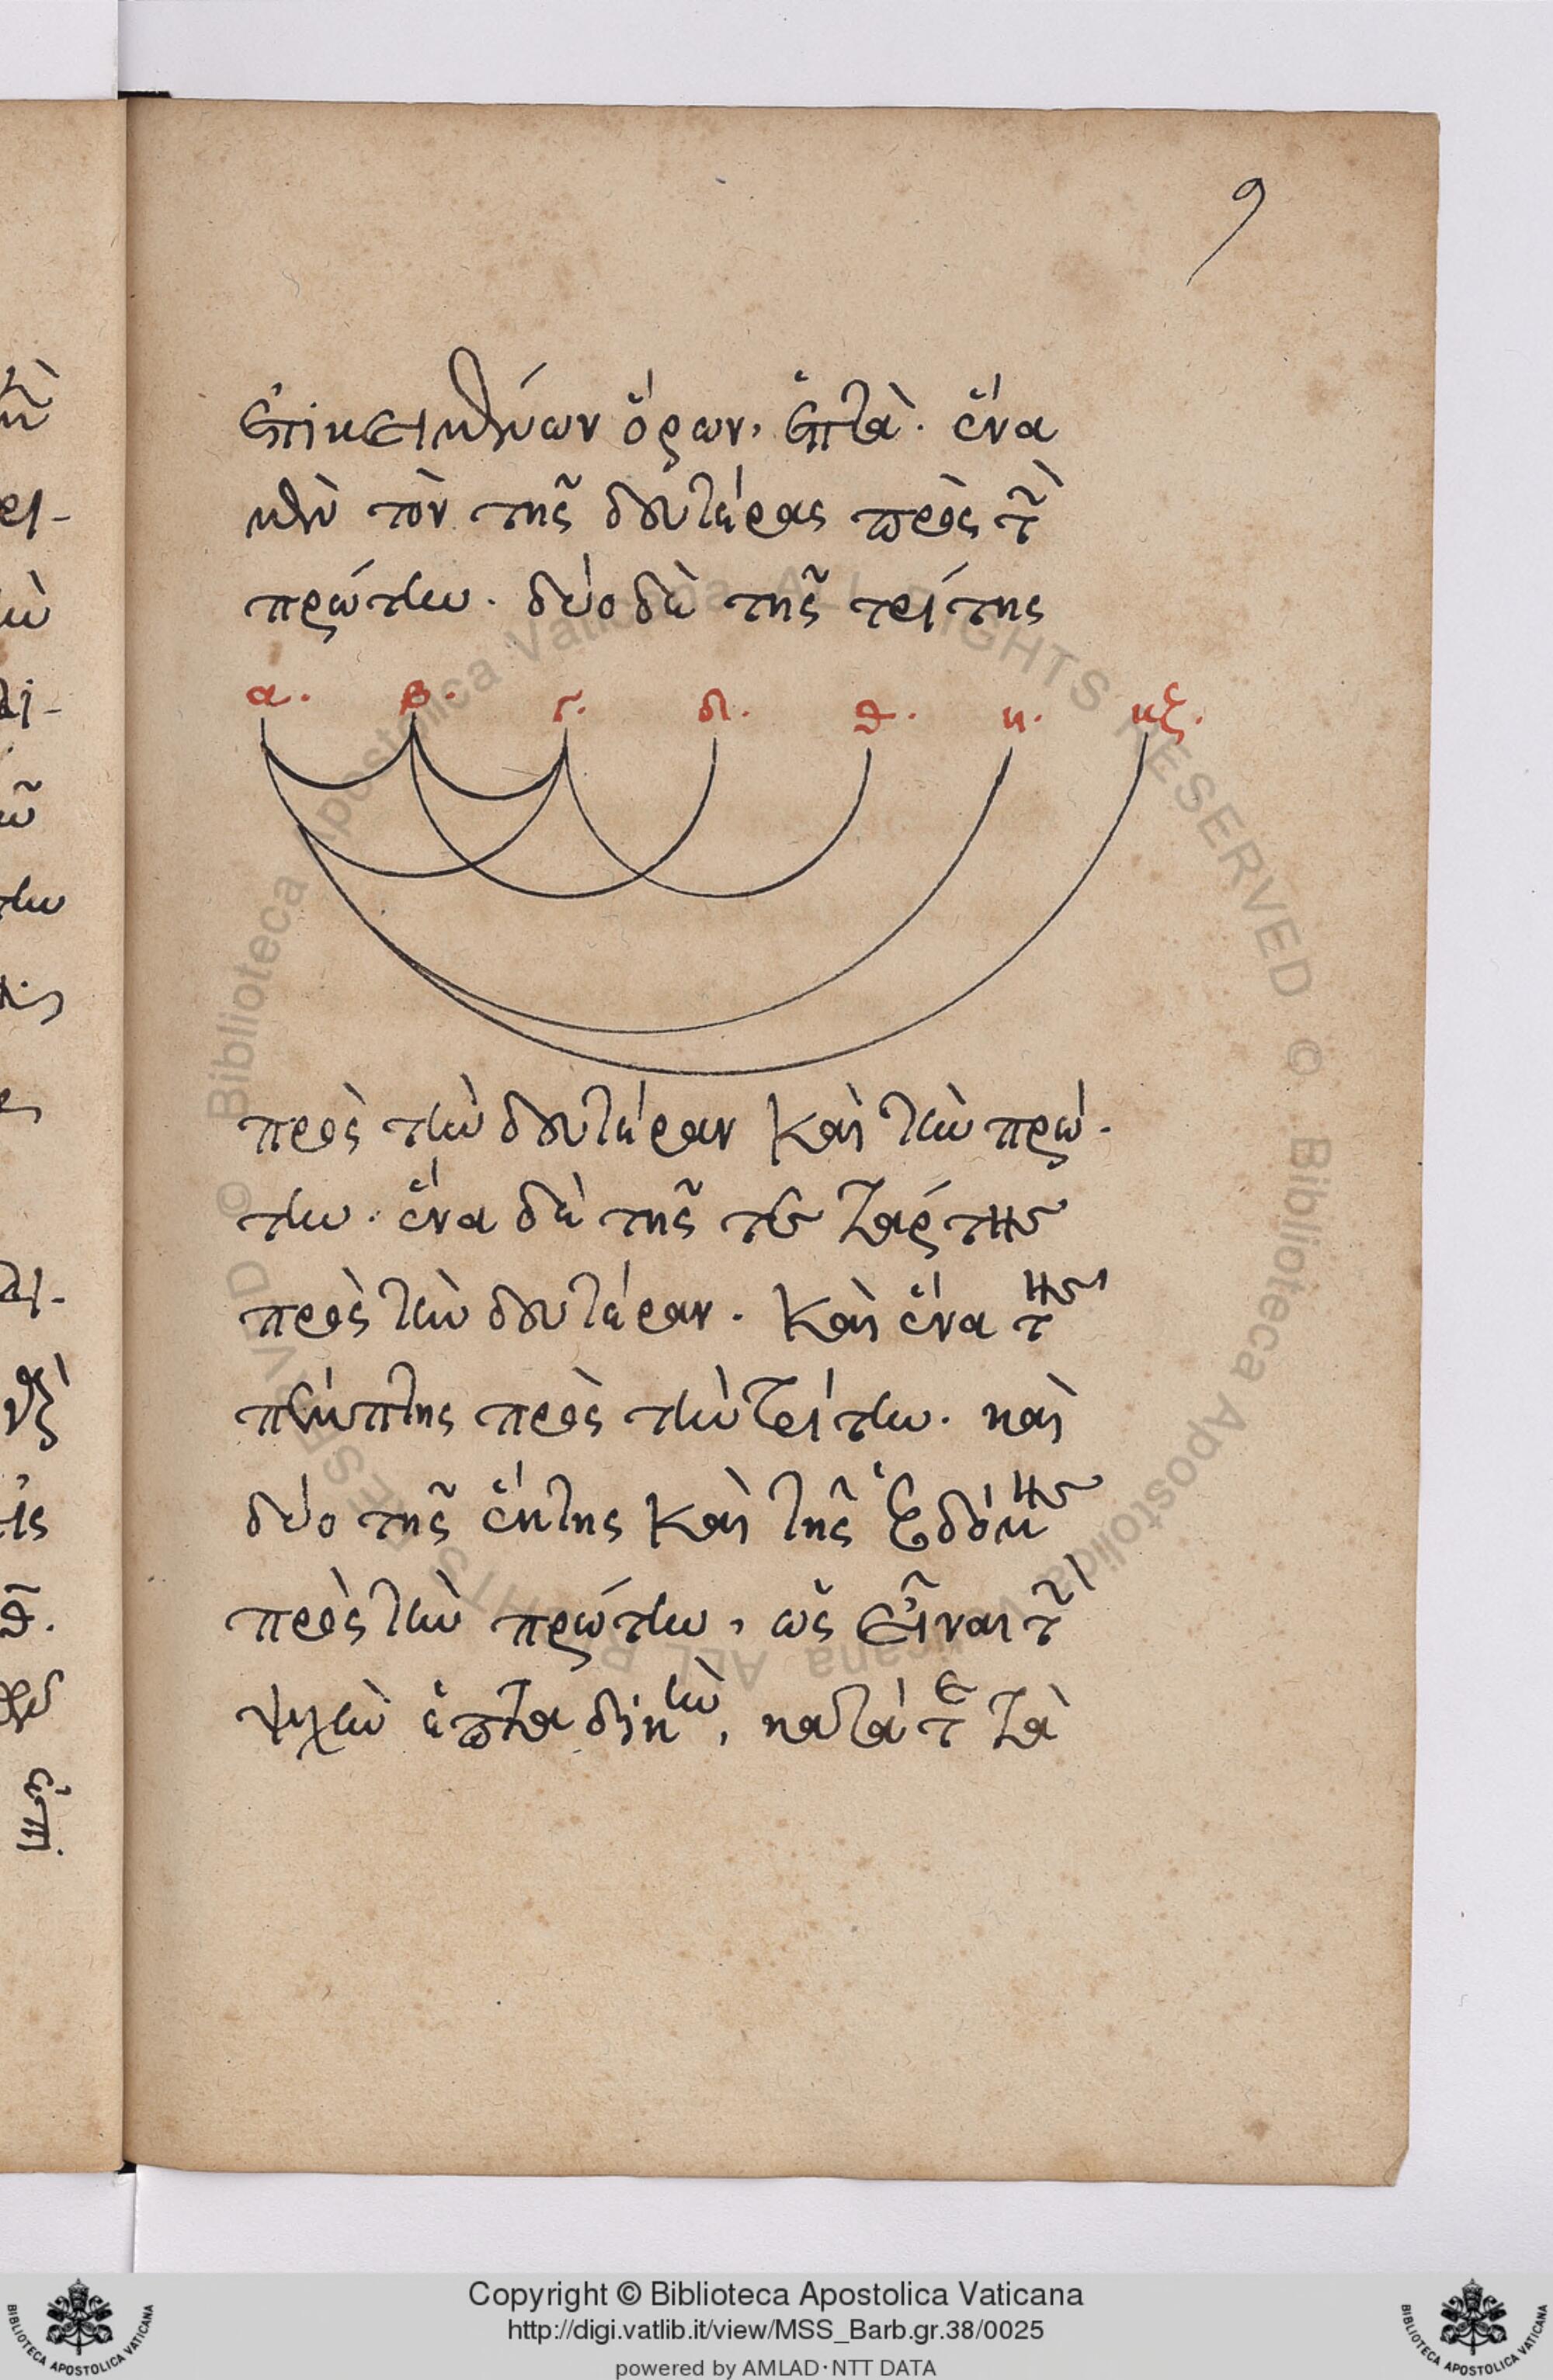 9
ἐπικειμένων ὅρων, ἑπτὰ. ἕνα
μὲν τὸν τῆς δευτέρας πρὸς τὴν
πρώτην. δύο δὲ τῆς τρίτης
α. β. γ. δ. θ. η. κζ.
πρὸς τὴν δευτέραν καὶ τὴν πρώ-
την. ἕνα δὲ τῆς τετάρτης
πρὸς τὴν δευτέραν. καὶ ἕνα τῆς
πέμπτης πρὸς τὴν τρίτην. καὶ
δύο τῆς ἕκτης καὶ τῆς ἑβδόμης
πρὸς τὴν πρώτην, ὡς εἶναι τὴν
ψυχὴν ἑπταδικὴν, κατά τε τὰ
© Biblioteca Apostolica Vaticana ALL RIGHTS RESERVED © Biblioteca Apostolica Vaticana ALL RIGHTS RESERVED
Copyright © Biblioteca Apostolica Vaticana
http://digi.vatlib.it/view/MSS_Barb.gr.38/0025
powered by AMLAD·NTT DATA
BIBLIOTECA APOSTOLICA VATICANA
BIBLIOTECA APOSTOLICA VATICANA